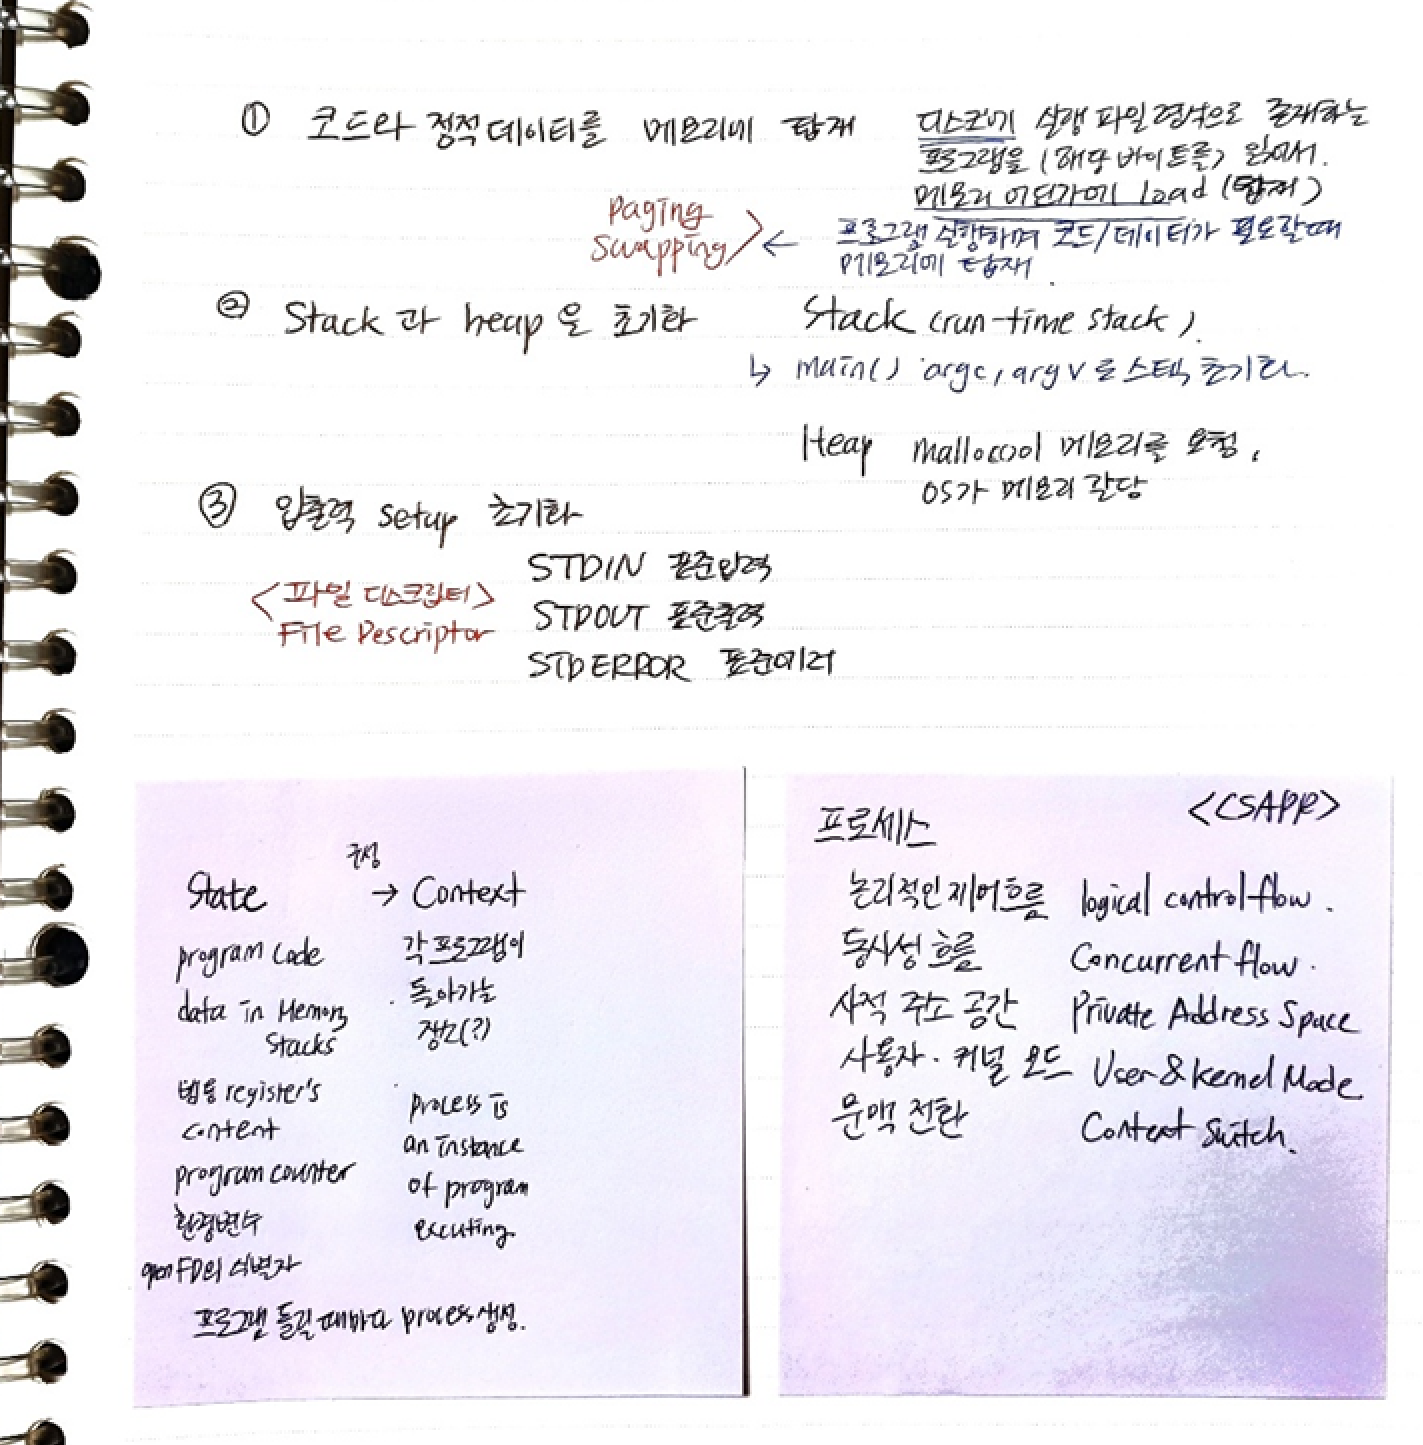 ① 코드와 정적 데이터를 메모리에 탑재
디스크에 실행 파일 형식으로 존재하는
프로그램을 (해당 바이트를) 읽어서.
메모리 어딘가에 load (탑재)
paging
swapping
← 프로그램 실행하며 코드/데이터가 필요할 때
메모리에 탑재
② Stack과 heap을 초기화
Stack (run-time stack).
↳ main() argc, argv로 스택 초기화.
Heap malloc 메모리를 요청,
OS가 메모리 할당
③ 입출력 setup 초기화
<파일 디스크립터>
File Descriptor
STDIN 표준입력
STDOUT 표준출력
STDERROR 표준에러
State
구성
→ Context
program code
data in Memory
Stacks
범용 register's
content
program counter
환경변수
open FD의 식별자
각 프로그램이
돌아가는
장소(?)
process is
an instance
of program
excuting.
프로그램 돌릴 때마다 process 생성.
프로세스
<CSAPP>
논리적인 제어흐름 logical control flow.
동시성 흐름 Concurrent flow.
사적 주소 공간 Private Address Space
사용자·커널 모드 User & Kernel Mode
문맥 전환 Context Switch.